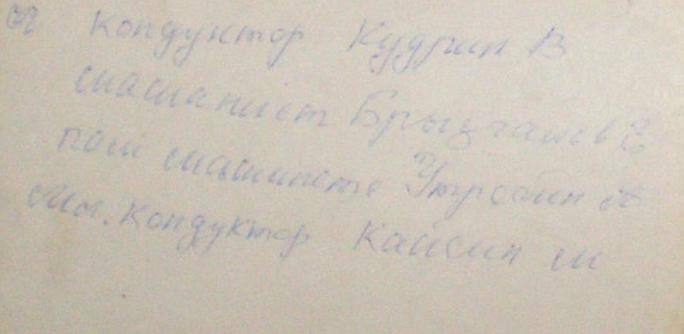 ст Кондуктор Кудрин В
машинист Е
пом машиниста Утробин А
Мл. Кондуктор Кайсин м